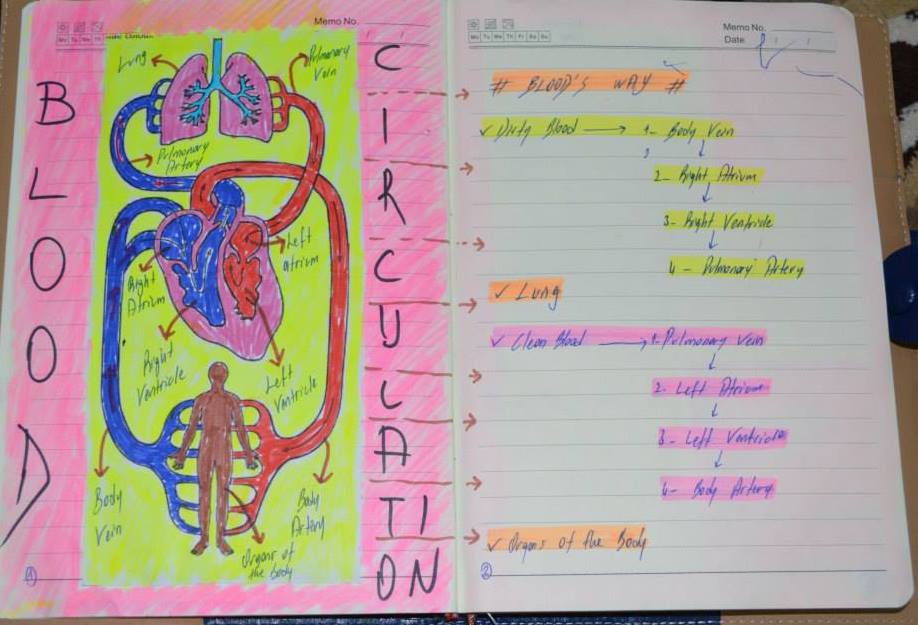 Memo No.
Mo Tu We Th
BLOOD
CIRCULATION
Lung
Pulmonary
Vein
Pulmonary
Artery
Left
atrium
Right
Atrium
Right
Ventricle
Left
Ventricle
Body
Vein
Body
Artery
Organs of
the body
1
Memo No.
Mo Tu We Th Fr Sa Su
Date
# BLOOD'S WAY #
✓ Dirty Blood → 1- Body Vein
↓
2- Right Atrium
↓
3- Right Ventricle
↓
4- Pulmonary Artery
✓ Lung
✓ Clean Blood → 1- Pulmonary Vein
↓
2- Left Atrium
↓
3- Left Ventricle
↓
4- Body Artery
✓ Organs of the Body
2